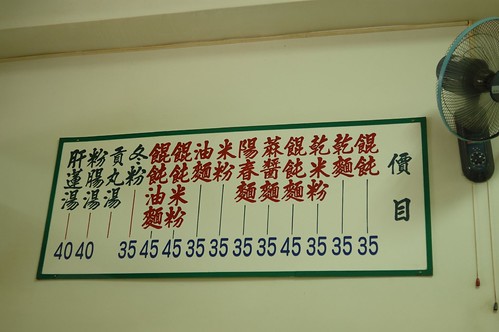 價目
餛飩 35
乾麵 35
乾米粉 35
餛飩麵 45
蔴醬麵 35
陽春麵 35
米粉 35
油麵 35
餛飩米粉 45
餛飩油麵 45
冬粉 35
貢丸湯
粉腸湯 40
肝蓮湯 40